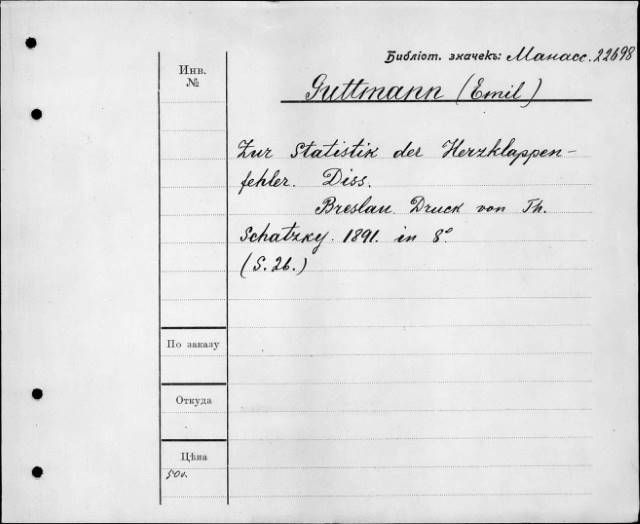 Библіот. значекъ: Манасс. 22698
Инв.
№
Guttmann (Emil)
Zur Statistik der Herzklappen-
fehler. Diss.
Breslau. Druck von Th.
Schatzky. 1891. in 8°
(S. 26.)
По заказу
Откуда
Цѣна